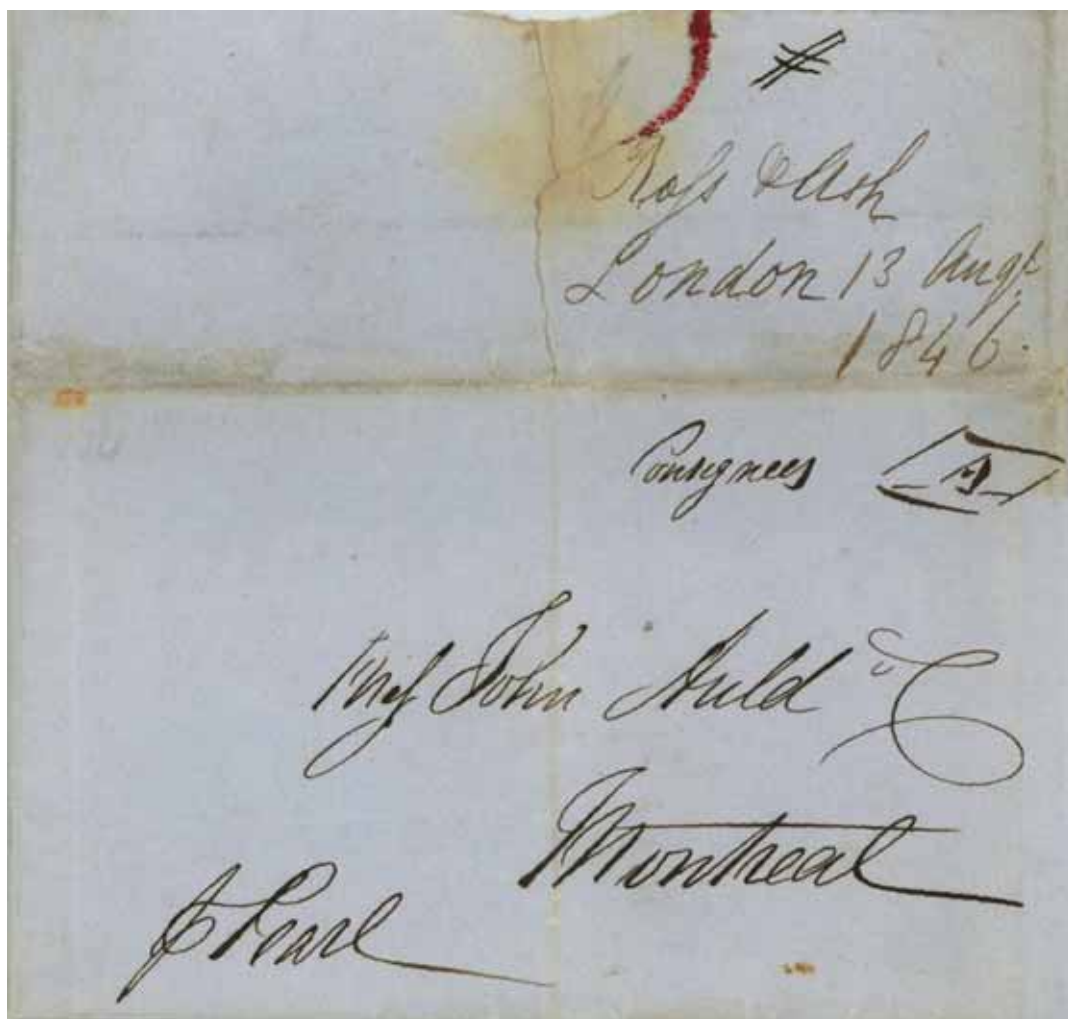 #
Ross & Ash
London 13 Augt
1846.
Consignees
John Auld
Montreal
Pearl